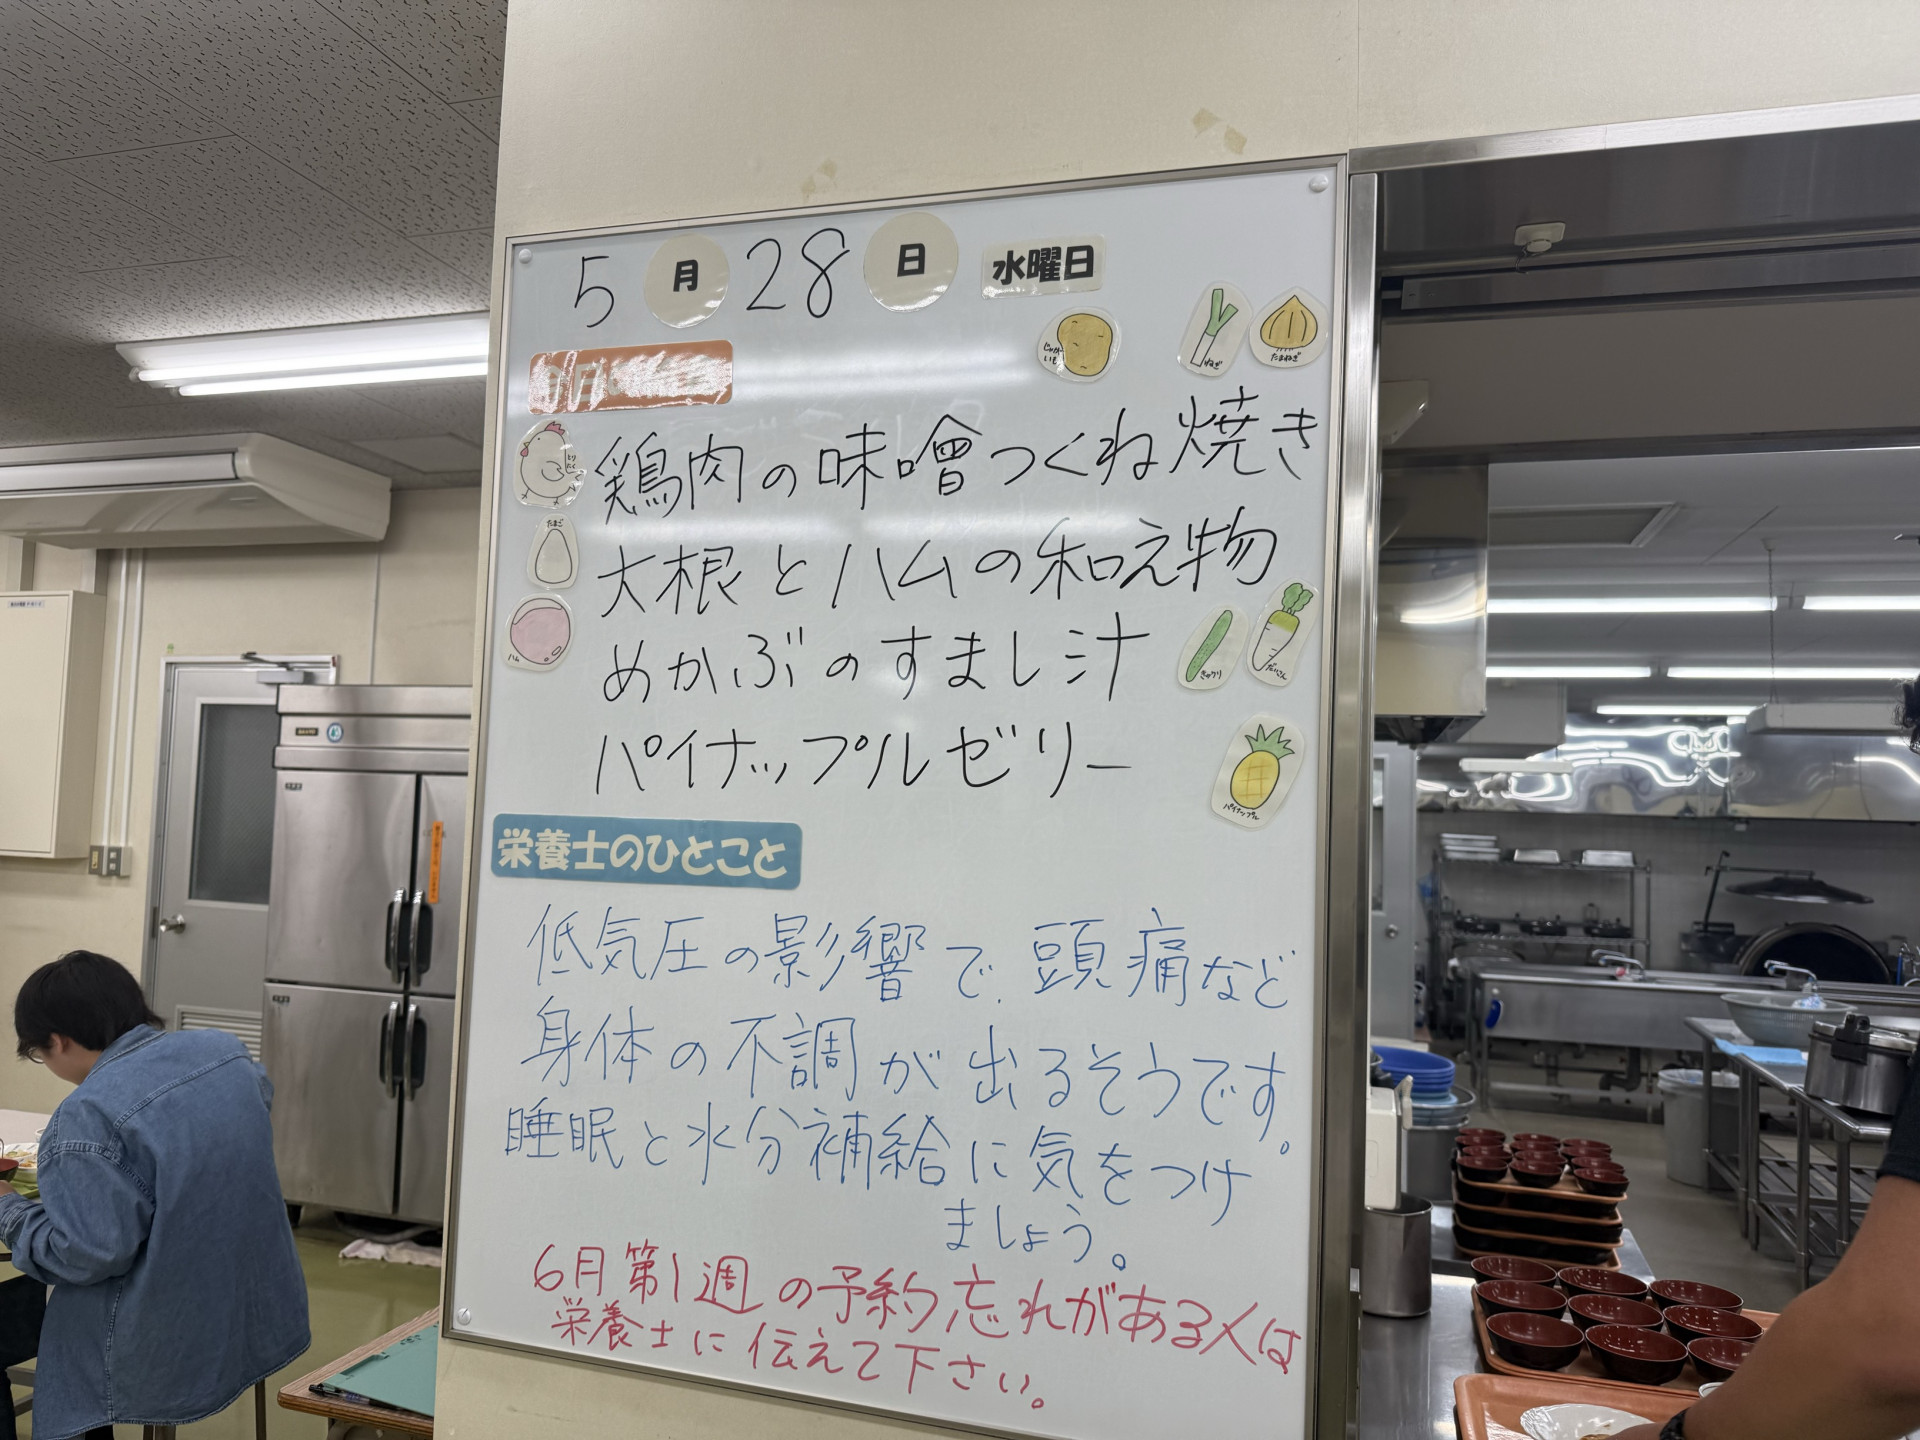 5月28日 水曜日
じゃがいも
ねぎ
たまねぎ
鶏肉の味噌つくね焼き
とりにく
たまご
大根とハムの和え物
ハム
めかぶのすまし汁
きゅうり
だいこん
パイナップルゼリー
パイナップル
栄養士のひとこと
低気圧の影響で、頭痛など
身体の不調が出るそうです。
睡眠と水分補給に気をつけ
ましょう。
6月第1週の予約忘れがある人は
栄養士に伝えて下さい。